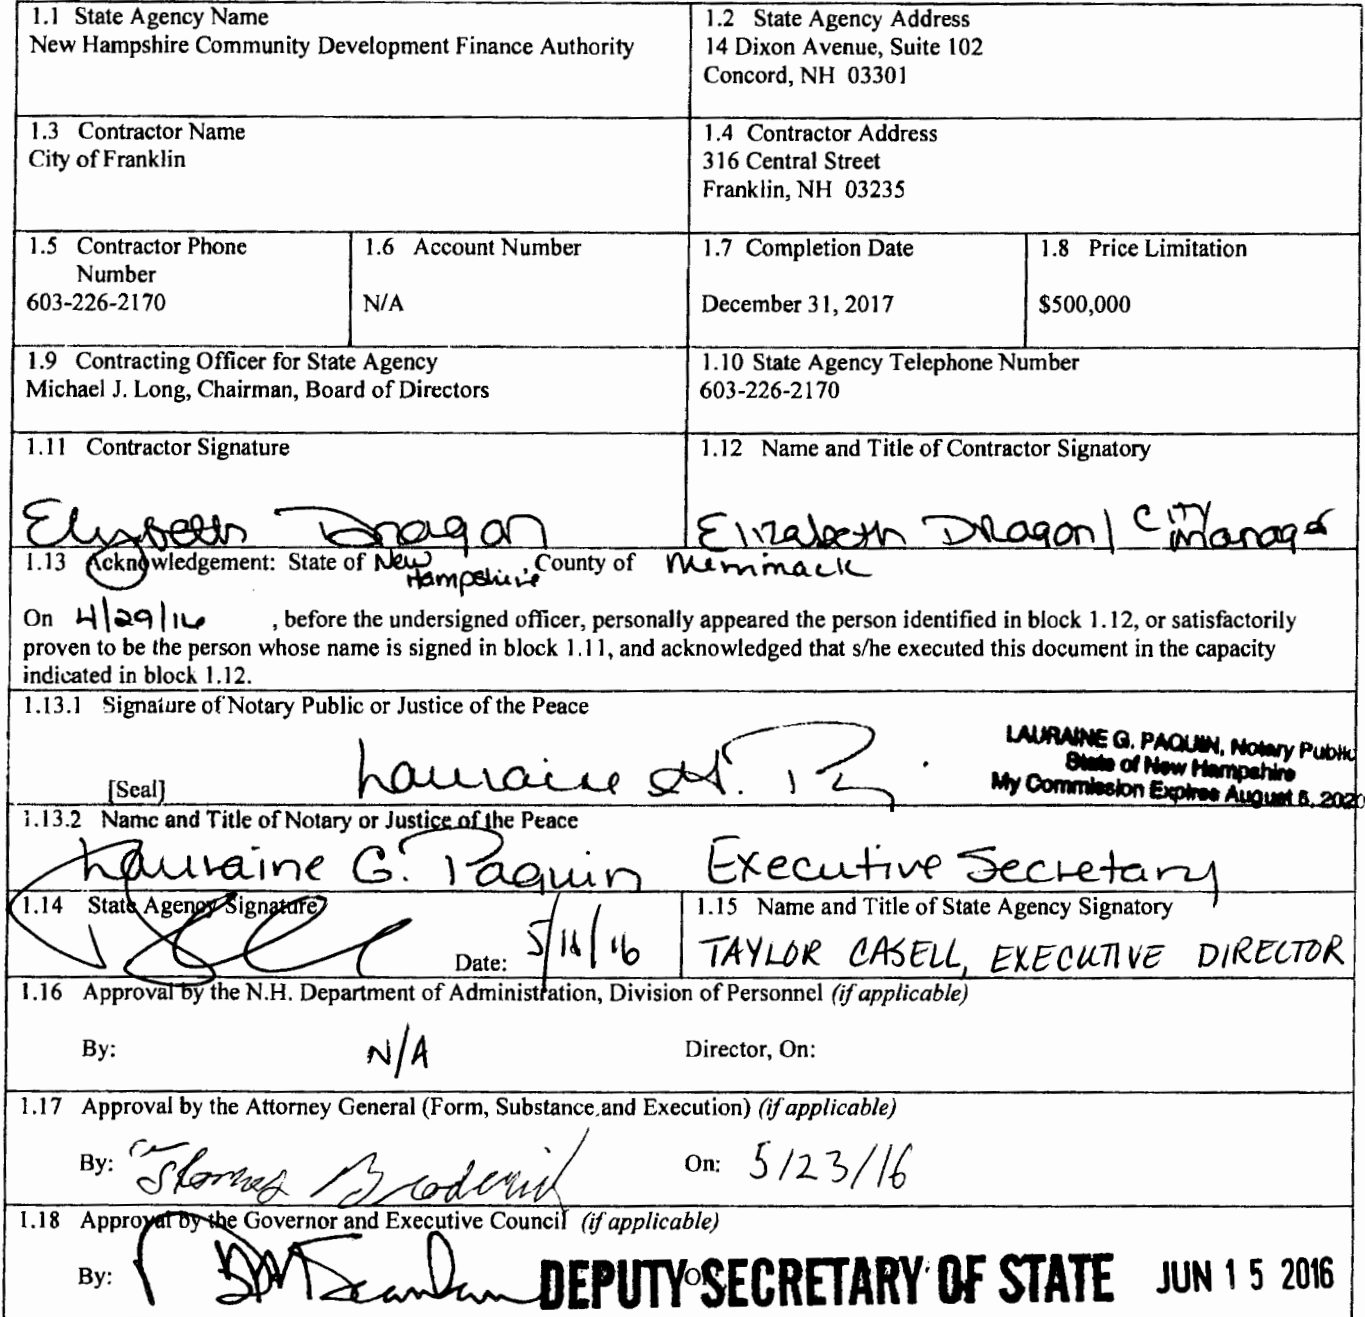 1.1 State Agency Name
New Hampshire Community Development Finance Authority
1.2 State Agency Address
14 Dixon Avenue, Suite 102
Concord, NH 03301
1.3 Contractor Name
City of Franklin
1.4 Contractor Address
316 Central Street
Franklin, NH 03235
1.5 Contractor Phone
Number
603-226-2170
1.6 Account Number
N/A
1.7 Completion Date
December 31, 2017
1.8 Price Limitation
$500,000
1.9 Contracting Officer for State Agency
Michael J. Long, Chairman, Board of Directors
1.10 State Agency Telephone Number
603-226-2170
1.11 Contractor Signature
Elizabeth Dragon
1.12 Name and Title of Contractor Signatory
Elizabeth Dragon / City
Manager
1.13 Acknowledgement: State of New Hampshire County of Merrimack
On 4/29/16 , before the undersigned officer, personally appeared the person identified in block 1.12, or satisfactorily
proven to be the person whose name is signed in block 1.11, and acknowledged that s/he executed this document in the capacity
indicated in block 1.12.
1.13.1 Signature of Notary Public or Justice of the Peace
[Seal]
Lauraine G. P
LAURAINE G. PAQUIN, Notary Public
State of New Hampshire
My Commission Expires August 5, 2020
1.13.2 Name and Title of Notary or Justice of the Peace
Lauraine G. Paquin Executive Secretary
1.14 State Agency Signature
Date: 5/11/16
1.15 Name and Title of State Agency Signatory
TAYLOR CASELL, EXECUTIVE DIRECTOR
1.16 Approval by the N.H. Department of Administration, Division of Personnel (if applicable)
By: N/A Director, On:
1.17 Approval by the Attorney General (Form, Substance and Execution) (if applicable)
By: Thomas Broderick On: 5/23/16
1.18 Approval by the Governor and Executive Council (if applicable)
By: DEPUTY SECRETARY OF STATE JUN 15 2016